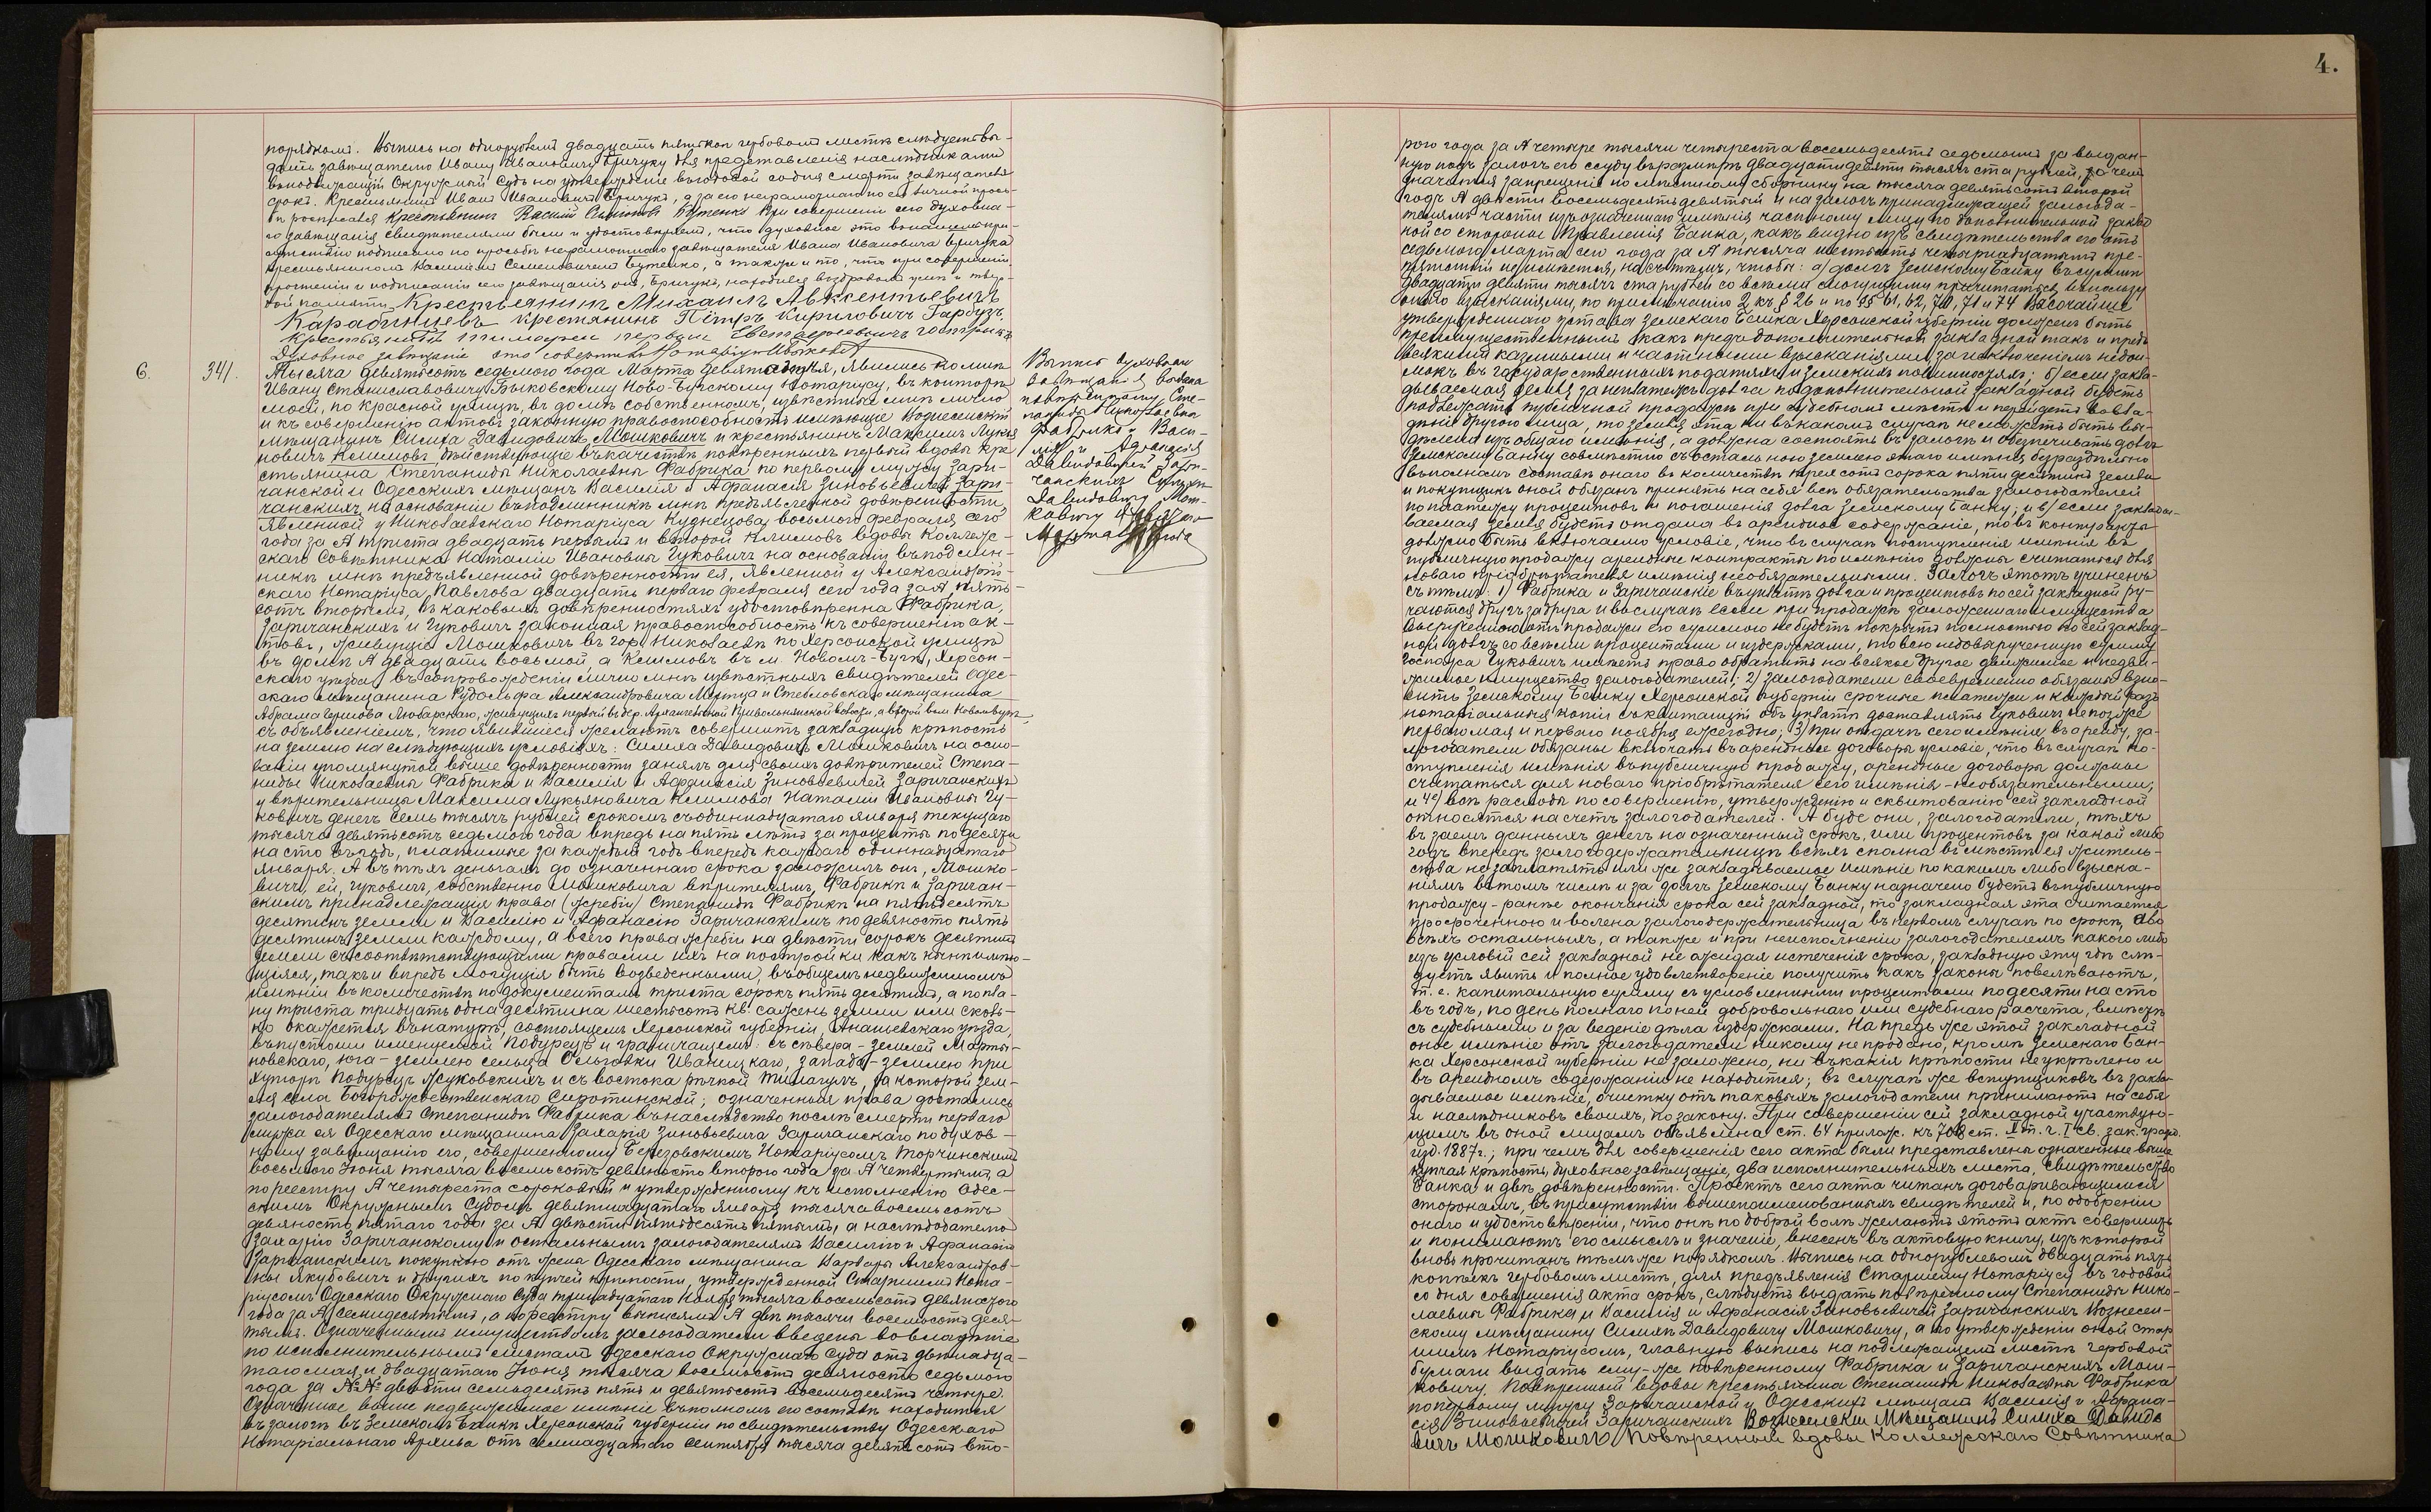 4.
порядкомъ. Выпись на однорублевомъ двадцать пяти коп гербовомъ листѣ слѣдуетъ вы-
дать завѣщателю Ивану Ивановичу Бричуку для представленія наслѣдниками
въ подлежащій Окружный Судъ на утвержденіе въ годовой со дня смерти завѣщателя
срокъ. Крестьянинъ Иванъ Ивановичъ Бричукъ, а за его неграмотнаго по его личной прось-
бѣ росписался крестьянинъ Василій Семеновъ Бутенко При совершеніи сего духовна-
го завѣщанія свидѣтелями были и удостовѣряемъ, что духовное это завѣщаніе при
подписано по просьбѣ неграмотнаго завѣщателя Ивана Ивановича Бричука
крестьяниномъ Василіемъ Семеновичемъ Бутенко, а также и то, что при совершеніи,
прочтеніи и подписаніи сего завѣщанія онъ, Бричукъ, находился въ здравомъ умѣ и твер-
дой памяти Крестьянинъ Михаилъ Авксентьевичъ
Карабинцевъ крестянинъ Пётръ Кириловичъ Гарбузъ.
Крестьянинъ
Духовное завѣщаніе это совершилъ Нотаріусъ Быковскій
6.
341.
Тысяча девятьсотъ седьмого года Марта девятаго дня, явились ко мнѣ
Ивану Станиславовичу Быковскому Ново-Бугскому Нотаріусу, въ контору
мою, по Красной улицѣ, въ домѣ собственномъ, извѣстные мнѣ лично
и къ совершенію актовъ законную правоспособность имѣющіе Вознесенскій
мѣщанинъ Симха Давидовичъ Мошковичъ и крестьянинъ Максимъ Лукья
новичъ Климовъ дѣйствующіе въ качествѣ повѣренныхъ первый вдовы кре
стьянина Степаниды Николаевны Фабрика по первому мужу Зари-
чанской и Одесскихъ мѣщанъ Василія и Афанасія Зиновьевичей Зари-
чанскихъ на основаніи въ подлинникѣ мнѣ предъявленной довѣренности,
явленной у Николаевскаго Нотаріуса Кузнецова восьмого февраля сего
года за № триста двадцать первымъ и второй Климовъ вдовы Коллеж-
скаго Совѣтника Наталіи Ивановны Гуковичъ на основаніи въ подлин-
никѣ мнѣ предъявленной довѣренности ея, явленной у Александрій-
скаго Нотаріуса Павлова двадцать перваго февраля сего года за № пять-
сотъ вторымъ, въ каковыхъ довѣренностяхъ удостовѣрена Фабрика,
Заричанскихъ и Гуковичъ законная правоспособность къ совершенію ак-
товъ, живущіе Мошковичъ въ гор. Николаевѣ по Херсонской улицѣ
въ домѣ № двадцать восьмой, а Климовъ въ м Новомъ-Бугѣ, Херсон-
скаго уѣзда, въ сопровожденіи лично мнѣ извѣстныхъ свидѣтелей Одес-
скаго мѣщанина Рудольфа Александровича Мертца и Стебловскаго мѣщанина
Абрама Герцова Любарскаго, живущихъ первый въ дер. Архангельской Привольнянской волости, а второй въ м Новомъ-Бугѣ
съ объявленіемъ, что явившіеся желаютъ совершить закладную крѣпость
на землю на слѣдующихъ условіяхъ: Симха Давидовичъ Мошковичъ на осно-
ваніи упомянутой выше довѣренности занялъ для своихъ довѣрителей Степа-
ниды Николаевны Фабрика и Василія и Афанасія Зиновьевичей Заричанскихъ
у вѣрительницы Максима Лукьяновича Климова Наталіи Ивановны Гу-
ковичъ денегъ семь тысячъ рублей срокомъ съ одиннадцатаго января текущаго
тысяча девятьсотъ седьмого года впредь на пять лѣтъ за проценты по десяти
на сто въ годъ, платимые за каждый годъ впередъ каждаго одиннадцатаго
января. А въ тѣхъ деньгахъ до означеннаго срока заложилъ онъ, Мошко-
вичъ, ей, Гуковичъ, собственно Мошковича вѣрителямъ, Фабрикѣ и Заричан-
скимъ принадлежащія права (жребіи) Степанидѣ Фабрикѣ на пятьдесятъ
десятинъ земли и Василію и Афанасію Заричанскимъ по девяносто пять
десятинъ земли каждому, а всего права жребіи на двѣсти сорокъ десятинъ
земли съ соотвѣтствующими правами ихъ на постройки какъ нынѣ имѣю-
щіяся, такъ и впредь могущія быть возведенными, въ общемъ недвижимомъ
имѣніи въ количествѣ по документамъ триста сорокъ пять десятинъ, а по пла-
ну триста тридцать одна десятина шестьсотъ кв. сажень земли или сколь-
ко окажется въ натурѣ, состоящемъ Херсонской губерніи, Ананьевскаго уѣзда,
въ пустоши именуемой Подурецъ и граничащемъ: съ сѣвера - землей Марты-
новскаго, юга - землею сельца Ольговки Иваницкаго, запада - землею при
хуторѣ Подурецъ Жуковскихъ и съ востока рѣчкой Тилигулъ, за которой зем-
ля села Богорождественскаго Сиротинской; означенныя права достались
залогодателямъ Степанидѣ Фабрика въ наслѣдство послѣ смерти перваго
мужа ея Одесскаго мѣщанина Захарія Зиновьевича Заричанскаго по духов-
ному завѣщанію его, совершенному Березовскимъ Нотаріусомъ Торчинскимъ
восьмого Іюня тысяча восемьсотъ девяносто второго года за № четвертымъ, а
по реестру № четыреста сороковый и утвержденному къ исполненію Одес-
скимъ Окружнымъ Судомъ девятнадцатаго Января тысяча восемьсотъ
девяносто пятаго года за № двѣсти пятьдесятъ пятымъ, а наслѣдодателю
Захарію Заричанскому и остальнымъ залогодателямъ Василію и Афанасію
Заричанскимъ покупкою отъ жены Одесскаго мѣщанина Варвары Александров-
ны Якубовичъ и другихъ по купчей крѣпости, утвержденной Старшимъ Нота-
ріусомъ Одесскаго Окружнаго Суда тринадцатаго Ноября тысяча восемьсотъ девяностого
года за № семидесятымъ, а по реестру выписямъ № двѣ тысячи восемьсотъ деся-
тымъ. Означеннымъ имуществомъ залогодатели введены во владѣніе
по исполнительнымъ листамъ Одесскаго Окружнаго Суда отъ двѣнадца-
таго мая и двадцатаго Іюня тысяча восемьсотъ девяносто седьмого
года за №№ двѣсти семьдесятъ пять и девятьсотъ восемьдесятъ четыре.
Означенное выше недвижимое имѣніе въ полномъ его составѣ находится
въ залогѣ въ Земскомъ Банкѣ Херсонской губерніи по свидѣтельству Одесскаго
Нотаріальнаго Архива отъ семнадцатаго сентября тысяча девятьсотъ вто-
Выпись духовнаго
завѣщанія выдана
повѣренному Сте-
паниды Николаевны
Фабрика и Васи-
лія и Афанасія
Зари-
чанскихъ Симхѣ
Давидовичу Мош-
ковичу
Марта
рого года за № четыре тысячи четыреста восемьдесятъ седьмымъ за выдан-
ную подъ залогъ его ссуду въ размѣрѣ двадцати девяти тысячъ ста рублей, о чемъ
значится запрещеніе по мѣстному сборнику на тысяча девятьсотъ второй
годъ № двѣсти восемьдесятъ девятый и на залогъ принадлежащей залогода-
телямъ части изъ означеннаго имѣнія частному лицу по дополнительной заклад
ной со стороны Правленія Банка, какъ видно изъ свидѣтельства его отъ
седьмого Марта сего года за № тысяча шестьсотъ четырнадцатымъ пре-
пятствій не имѣется, на съ тѣмъ, чтобы: а) долгъ Земскому Банку въ суммѣ
двадцати девяти тысячъ ста рублей со всѣми могущими причитаться въ пользу
онаго взысканіями, по примѣчанію 2 къ § 26 и по §§ 61, 62, 70, 71 и 74 Высочайше
утвержденнаго устава Земскаго Банка Херсонской губерніи долженъ быть
преимущественнымъ какъ предъ дополнительной закладной такъ и предъ
всякими казенными и частными взысканіями, за исключеніемъ недои-
мокъ въ государственныхъ податяхъ и земскихъ повинностяхъ; б) если закла-
дываемая земля за неплатежъ долга по дополнительной закладной будетъ
подлежать публичной продажѣ при судебномъ мѣстѣ и перейдетъ во вла-
дѣніе другого лица, то земля эта ни въ какомъ случаѣ не можетъ быть вы-
дѣлена изъ общаго имѣнія, а должна состоять въ залогѣ и обезпечивать долгъ
Земскому Банку совмѣстно съ остальною землею этаго имѣнія безраздѣльно
въ полномъ составѣ онаго въ количествѣ трехсотъ сорока пяти десятинъ земли
и покупщикъ оной обязанъ принять на себя всѣ обязательства залогодателей
по платежу процентовъ и погашенія долга Земскому Банку; и в) если заклады-
ваемая земля будетъ отдана въ арендное содержаніе, то въ контрактѣ
должно быть включаемо условіе, что въ случаѣ поступленія имѣнія въ
публичную продажу арендные контракты по имѣнію должны считаться для
новаго пріобрѣтателя имѣнія необязательными. Залогъ этотъ учиненъ
съ тѣмъ: 1) Фабрика и Заричанскіе въ уплатѣ долга и процентовъ по сей закладной ру-
чаются другъ за друга и въ случаѣ если при продажѣ заложеннаго имущества
вырученною отъ продажи его суммою не будетъ покрытъ полностью по сей заклад-
ной долгъ со всѣми процентами и издержками, то всю недовырученную сумму
Госпожа Гуковичъ имѣетъ право обратить на всякое другое движимое и недви-
жимое имущество залогодателей; 2) залогодатели своевременно обязаны взно-
сить Земскому Банку Херсонской губерніи срочные платежи и каждый разъ
нотаріальныя копіи съ квитанцій объ уплатѣ доставлять Гуковичъ не позже
перваго мая и перваго ноября ежегодно; 3) при отдачѣ сего имѣнія въ аренду, за-
логодатели обязаны включать въ арендные договоры условіе, что въ случаѣ по-
ступленія имѣнія въ публичную продажу, арендные договоры должны
считаться для новаго пріобрѣтателя сего имѣнія - необязательными;
и 4) всѣ расходы по совершенію, утвержденію и сквитованію сей закладной
относятся на счетъ залогодателей. А буде они, залогодатели, тѣхъ
въ заемъ данныхъ денегъ на означенный срокъ, или процентовъ за какой либо
годъ впередъ залогодержательницѣ всѣхъ сполна въ мѣстѣ ея житель-
ства не заплатятъ или же закладываемое имѣніе по какимъ либо взыска-
ніямъ въ томъ числѣ и за долгъ Земскому Банку назначено будетъ въ публичную
продажу - ранѣе окончанія срока сей закладной, то закладная эта считается
просроченною и волена залогодержательница въ первомъ случаѣ по срокѣ, а во
всѣхъ остальныхъ, а также и при неисполненіи залогодателемъ какого либо
изъ условій сей закладной не ожидая истеченія срока, закладную эту гдѣ слѣ-
дуетъ явить и полное удовлетвореніе получить какъ законы повелѣваютъ,
т. е. капитальную сумму съ условленными процентами по десяти на сто
въ годъ, по день полнаго по ней добровольнаго или судебнаго расчета, вмѣстѣ
съ судебными и за веденіе дѣла издержками. На предь же этой закладной
оное имѣніе отъ залогодателей никому не продано, кромѣ Земскаго Бан-
ка Херсонской губерніи не заложено, ни въ какія крѣпости не укрѣплено и
въ арендномъ содержаніи не находится; въ случаѣ же вступщиковъ въ закла-
дываемое имѣніе, очистку отъ таковыхъ залогодатели принимаютъ на себя
и наслѣдниковъ своихъ, по закону. При совершеніи сей закладной участвую-
щимъ въ оной лицамъ объявлена ст. 64 прилож. къ 708 ст. X т. ч. I св. зак. гражд.
изд. 1887 г.; при чемъ для совершенія сего акта были представлены означенные выше
купчая крѣпость, духовное завѣщаніе, два исполнительныхъ листа, свидѣтельство
Банка и двѣ довѣренности. Проектъ сего акта читанъ договаривающимся
сторонамъ, въ присутствіи вышепоименованныхъ свидѣтелей и, по одобреніи
онаго и удостовѣреніи, что онѣ по доброй волѣ желаютъ этотъ актъ совершить
и понимаютъ его смыслъ и значеніе, внесенъ въ актовую книгу, изъ которой
вновь прочитанъ тѣмъ же порядкомъ. Выпись на однорублевомъ двадцать пять
копѣекъ гербовомъ листѣ, для предъявленія Старшему Нотаріусу въ годовой
со дня совершенія акта срокъ, слѣдуетъ выдать повѣренному Степаниды Нико-
лаевны Фабрика и Василія и Афанасія Зиновьевичей Заричанскихъ Вознесен-
скому мѣщанину Симхѣ Давидовичу Мошковичу, а по утвержденіи оной Стар
шимъ Нотаріусомъ, главную выпись на подлежащемъ листѣ гербовой
бумаги выдать ему-же повѣренному Фабрика и Заричанскихъ Мош-
ковичу. Повѣренный вдовы крестьянина Степаниды Николаевны Фабрика
по первому мужу Заричанской и Одесскихъ мѣщанъ Василія и Афана-
сія Зиновьевичей Заричанскихъ Вознесенскій Мѣщанинъ Симха Давидо
вичъ Мошковичъ Повѣренный вдовы Коллежскаго Совѣтника